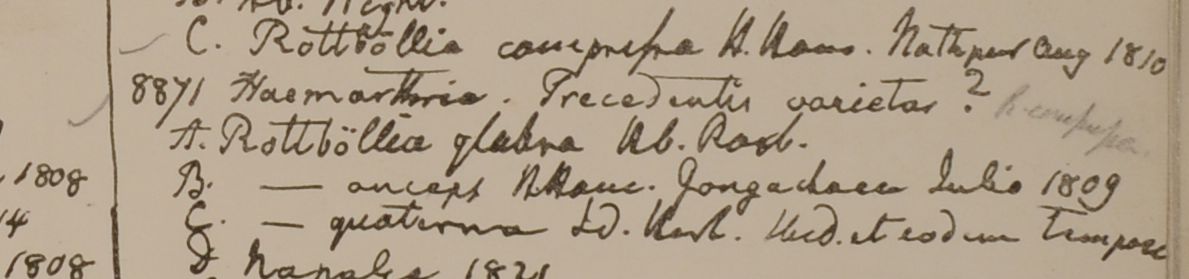 B. Hb. Wight.
C. Rottböllia compressa H. Ham. Nathpur Aug 1810
8871 Haemarthria. Precedentis varietas? R. compressa.
A. Rottböllia glabra Hb. Roxb.
1808 B. — anceps H. Ham. Gongachora Julio 1809
14 C. — quaterna Id. Herb. Ibid. et eodem tempore
1808 D Napalia 1821